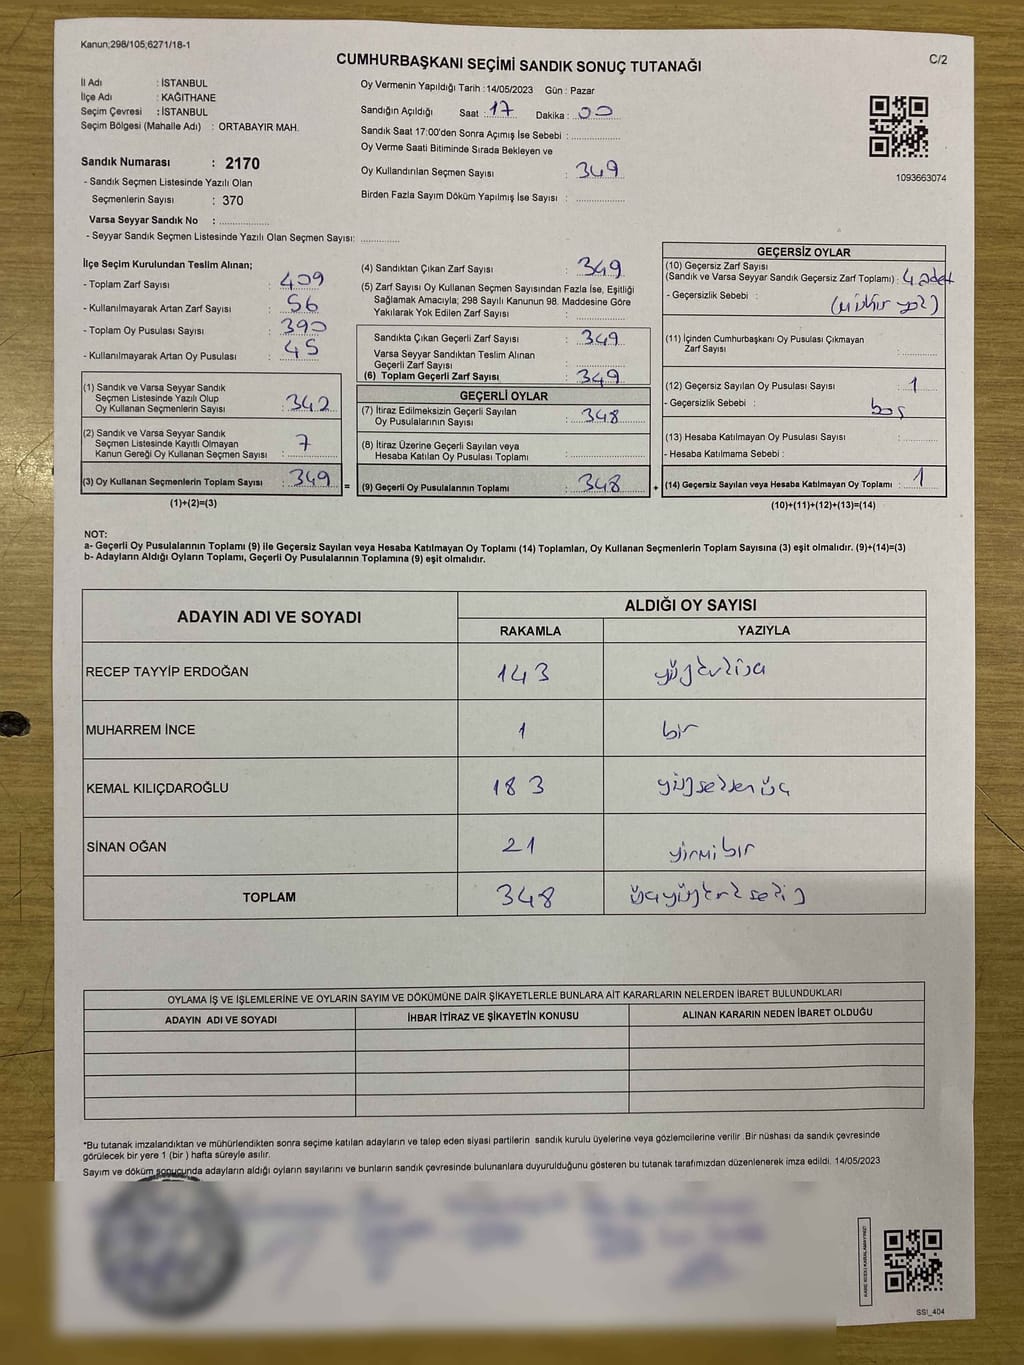 Kanun;298/105;6271/18-1
C/2
CUMHURBAŞKANI SEÇİMİ SANDIK SONUÇ TUTANAĞI
İl Adı : İSTANBUL
İlçe Adı : KAĞITHANE
Seçim Çevresi : İSTANBUL
Seçim Bölgesi (Mahalle Adı) : ORTABAYIR MAH.
Sandık Numarası : 2170
- Sandık Seçmen Listesinde Yazılı Olan
Seçmenlerin Sayısı : 370
Varsa Seyyar Sandık No :
- Seyyar Sandık Seçmen Listesinde Yazılı Olan Seçmen Sayısı:
Oy Vermenin Yapıldığı Tarih : 14/05/2023 Gün : Pazar
Sandığın Açıldığı Saat : 17 Dakika : 00
Sandık Saat 17:00'den Sonra Açımış İse Sebebi :
Oy Verme Saati Bitiminde Sırada Bekleyen ve
Oy Kullandırılan Seçmen Sayısı : 349
Birden Fazla Sayım Döküm Yapılmış İse Sayısı :
1093663074
İlçe Seçim Kurulundan Teslim Alınan;
- Toplam Zarf Sayısı : 409
- Kullanılmayarak Artan Zarf Sayısı : 56
- Toplam Oy Pusulası Sayısı : 390
- Kullanılmayarak Artan Oy Pusulası : 45
(1) Sandık ve Varsa Seyyar Sandık
Seçmen Listesinde Yazılı Olup
Oy Kullanan Seçmenlerin Sayısı : 342
(2) Sandık ve Varsa Seyyar Sandık
Seçmen Listesinde Kayıtlı Olmayan
Kanun Gereği Oy Kullanan Seçmen Sayısı : 7
(3) Oy Kullanan Seçmenlerin Toplam Sayısı : 349 =
(1)+(2)=(3)
(4) Sandıktan Çıkan Zarf Sayısı : 349
(5) Zarf Sayısı Oy Kullanan Seçmen Sayısından Fazla İse, Eşitliği
Sağlamak Amacıyla; 298 Sayılı Kanunun 98. Maddesine Göre
Yakılarak Yok Edilen Zarf Sayısı :
Sandıkta Çıkan Geçerli Zarf Sayısı : 349
Varsa Seyyar Sandıktan Teslim Alınan
Geçerli Zarf Sayısı :
(6) Toplam Geçerli Zarf Sayısı : 349
GEÇERLİ OYLAR
(7) İtiraz Edilmeksizin Geçerli Sayılan
Oy Pusulalarının Sayısı : 348
(8) İtiraz Üzerine Geçerli Sayılan veya
Hesaba Katılan Oy Pusulası Toplamı :
(9) Geçerli Oy Pusulalarının Toplamı : 348 +
GEÇERSİZ OYLAR
(10) Geçersiz Zarf Sayısı
(Sandık ve Varsa Seyyar Sandık Geçersiz Zarf Toplamı) : 4 adet
- Geçersizlik Sebebi : (mühür yok)
(11) İçinden Cumhurbaşkanı Oy Pusulası Çıkmayan
Zarf Sayısı :
(12) Geçersiz Sayılan Oy Pusulası Sayısı : 1
- Geçersizlik Sebebi : boş
(13) Hesaba Katılmayan Oy Pusulası Sayısı :
- Hesaba Katılmama Sebebi :
(14) Geçersiz Sayılan veya Hesaba Katılmayan Oy Toplamı : 1
(10)+(11)+(12)+(13)=(14)
NOT:
a- Geçerli Oy Pusulalarının Toplamı (9) ile Geçersiz Sayılan veya Hesaba Katılmayan Oy Toplamı (14) Toplamları, Oy Kullanan Seçmenlerin Toplam Sayısına (3) eşit olmalıdır. (9)+(14)=(3)
b- Adayların Aldığı Oyların Toplamı, Geçerli Oy Pusulalarının Toplamına (9) eşit olmalıdır.
ADAYIN ADI VE SOYADI
ALDIĞI OY SAYISI
RAKAMLA YAZIYLA
RECEP TAYYİP ERDOĞAN 143 yüzkırküç
MUHARREM İNCE 1 bir
KEMAL KILIÇDAROĞLU 183 yüzseksenüç
SİNAN OĞAN 21 yirmibir
TOPLAM 348 üçyüzkırksekiz
OYLAMA İŞ VE İŞLEMLERİNE VE OYLARIN SAYIM VE DÖKÜMÜNE DAİR ŞİKAYETLERLE BUNLARA AİT KARARLARIN NELERDEN İBARET BULUNDUKLARI
ADAYIN ADI VE SOYADI İHBAR İTİRAZ VE ŞİKAYETİN KONUSU ALINAN KARARIN NEDEN İBARET OLDUĞU
*Bu tutanak imzalandıktan ve mühürlendikten sonra seçime katılan adayların ve talep eden siyasi partilerin sandık kurulu üyelerine veya gözlemcilerine verilir .Bir nüshası da sandık çevresinde
görülecek bir yere 1 (bir ) hafta süreyle asılır.
Sayım ve döküm sonucunda adayların aldığı oyların sayılarını ve bunların sandık çevresinde bulunanlara duyurulduğunu gösteren bu tutanak tarafımızdan düzenlenerek imza edildi. 14/05/2023
KARE KODU KARALAMAYINIZ!
SSI_404